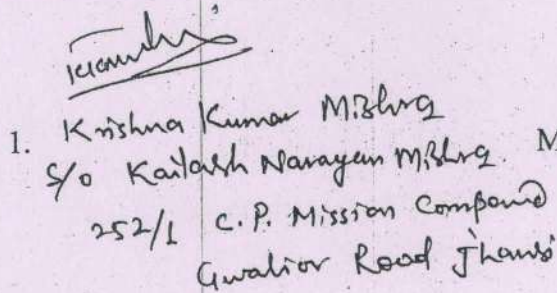 1. Krishna Kumar Mishra
S/o Kailash Narayan Mishra M
252/1 C.P. Mission Compound
Gwalior Road Jhansi